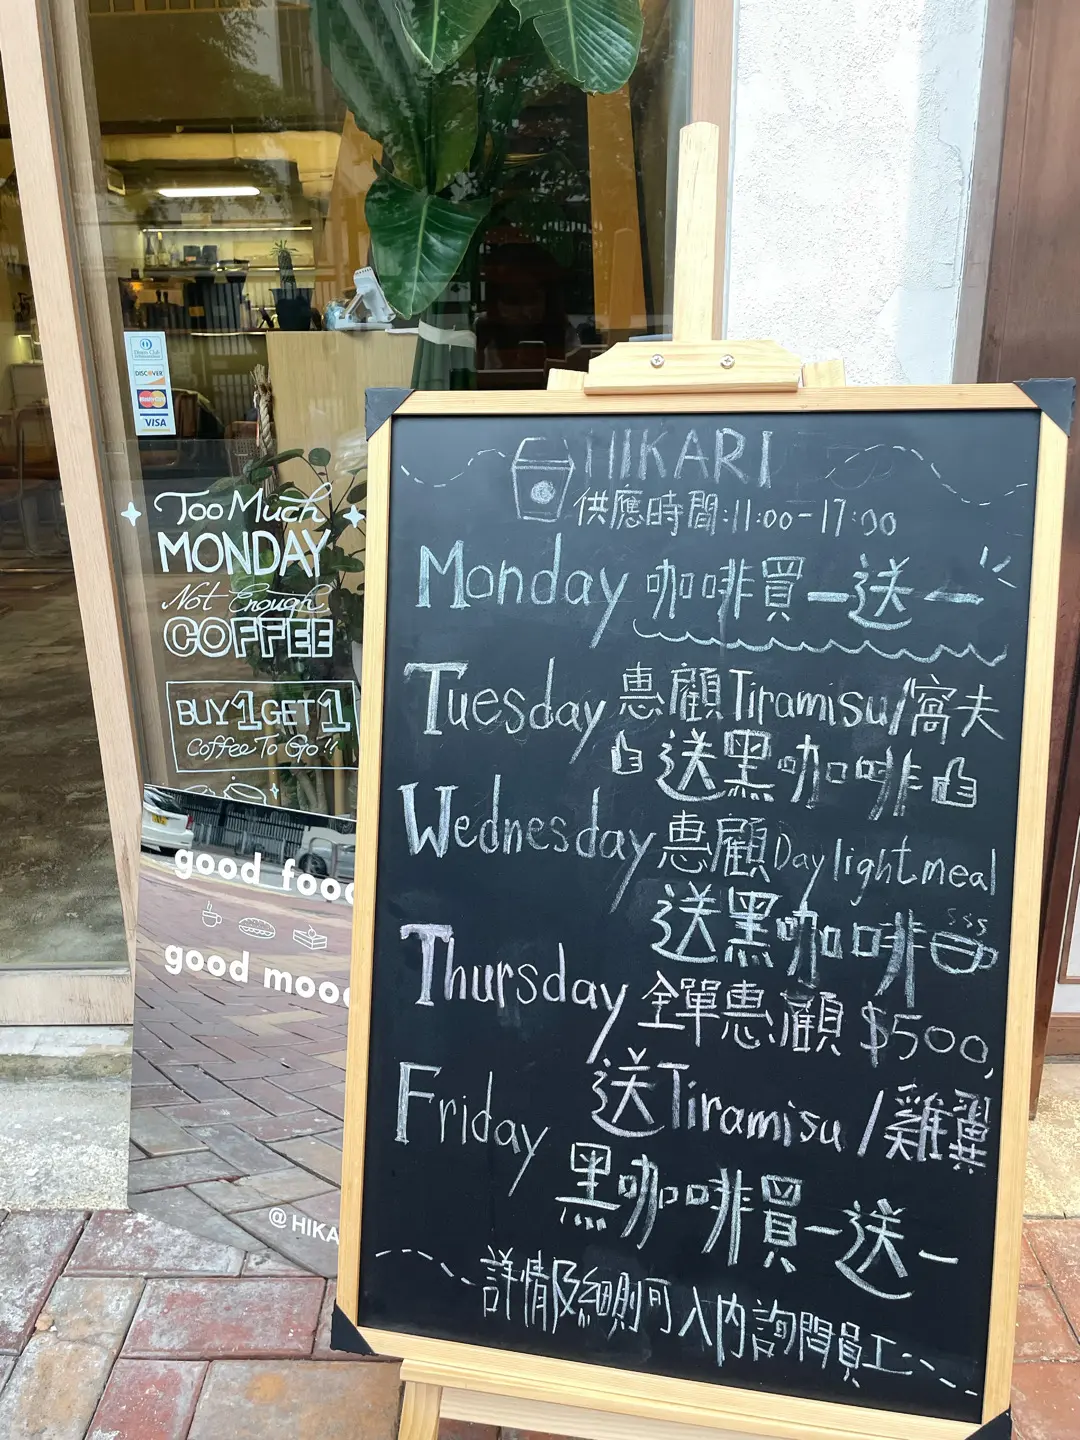 HIKARI
供應時間:11:00-17:00
Monday 咖啡買一送一
Tuesday 惠顧Tiramisu/窩夫
送黑咖啡
Wednesday 惠顧Daylight meal
送黑咖啡
Thursday 全單惠顧 $500,
送Tiramisu/雞翼
Friday
黑咖啡買一送一
詳情及細則可入內詢問員工
Diners Club
DISCOVER
MasterCard
VISA
Too Much
MONDAY
Not Enough
COFFEE
BUY 1 GET 1
Coffee To Go!!
good food
good mood
@HIKA